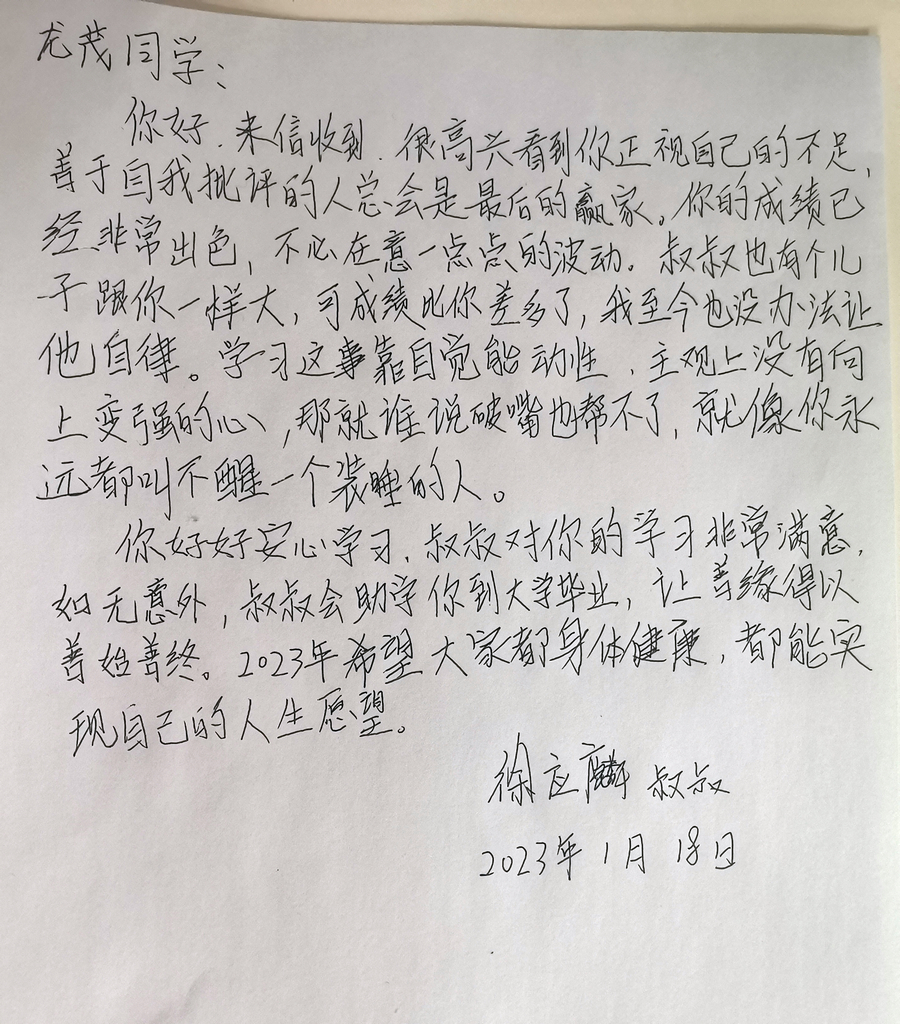 龙茂同学：
你好，来信收到，很高兴看到你正视自己的不足，
善于自我批评的人总会是最后的赢家。你的成绩已
经非常出色，不必在意一点点的波动。叔叔也有个儿
子跟你一样大，可成绩比你差多了，我至今也没办法让
他自律。学习这事靠自觉能动性，主观上没有向
上变强的心，那就谁说破嘴也帮不了，就像你永
远都叫不醒一个装睡的人。
你好好安心学习，叔叔对你的学习非常满意，
如无意外，叔叔会助学你到大学毕业，让善缘得以
善始善终。2023年希望大家都身体健康，都能实
现自己的人生愿望。
徐应麟 叔叔
2023年1月18日